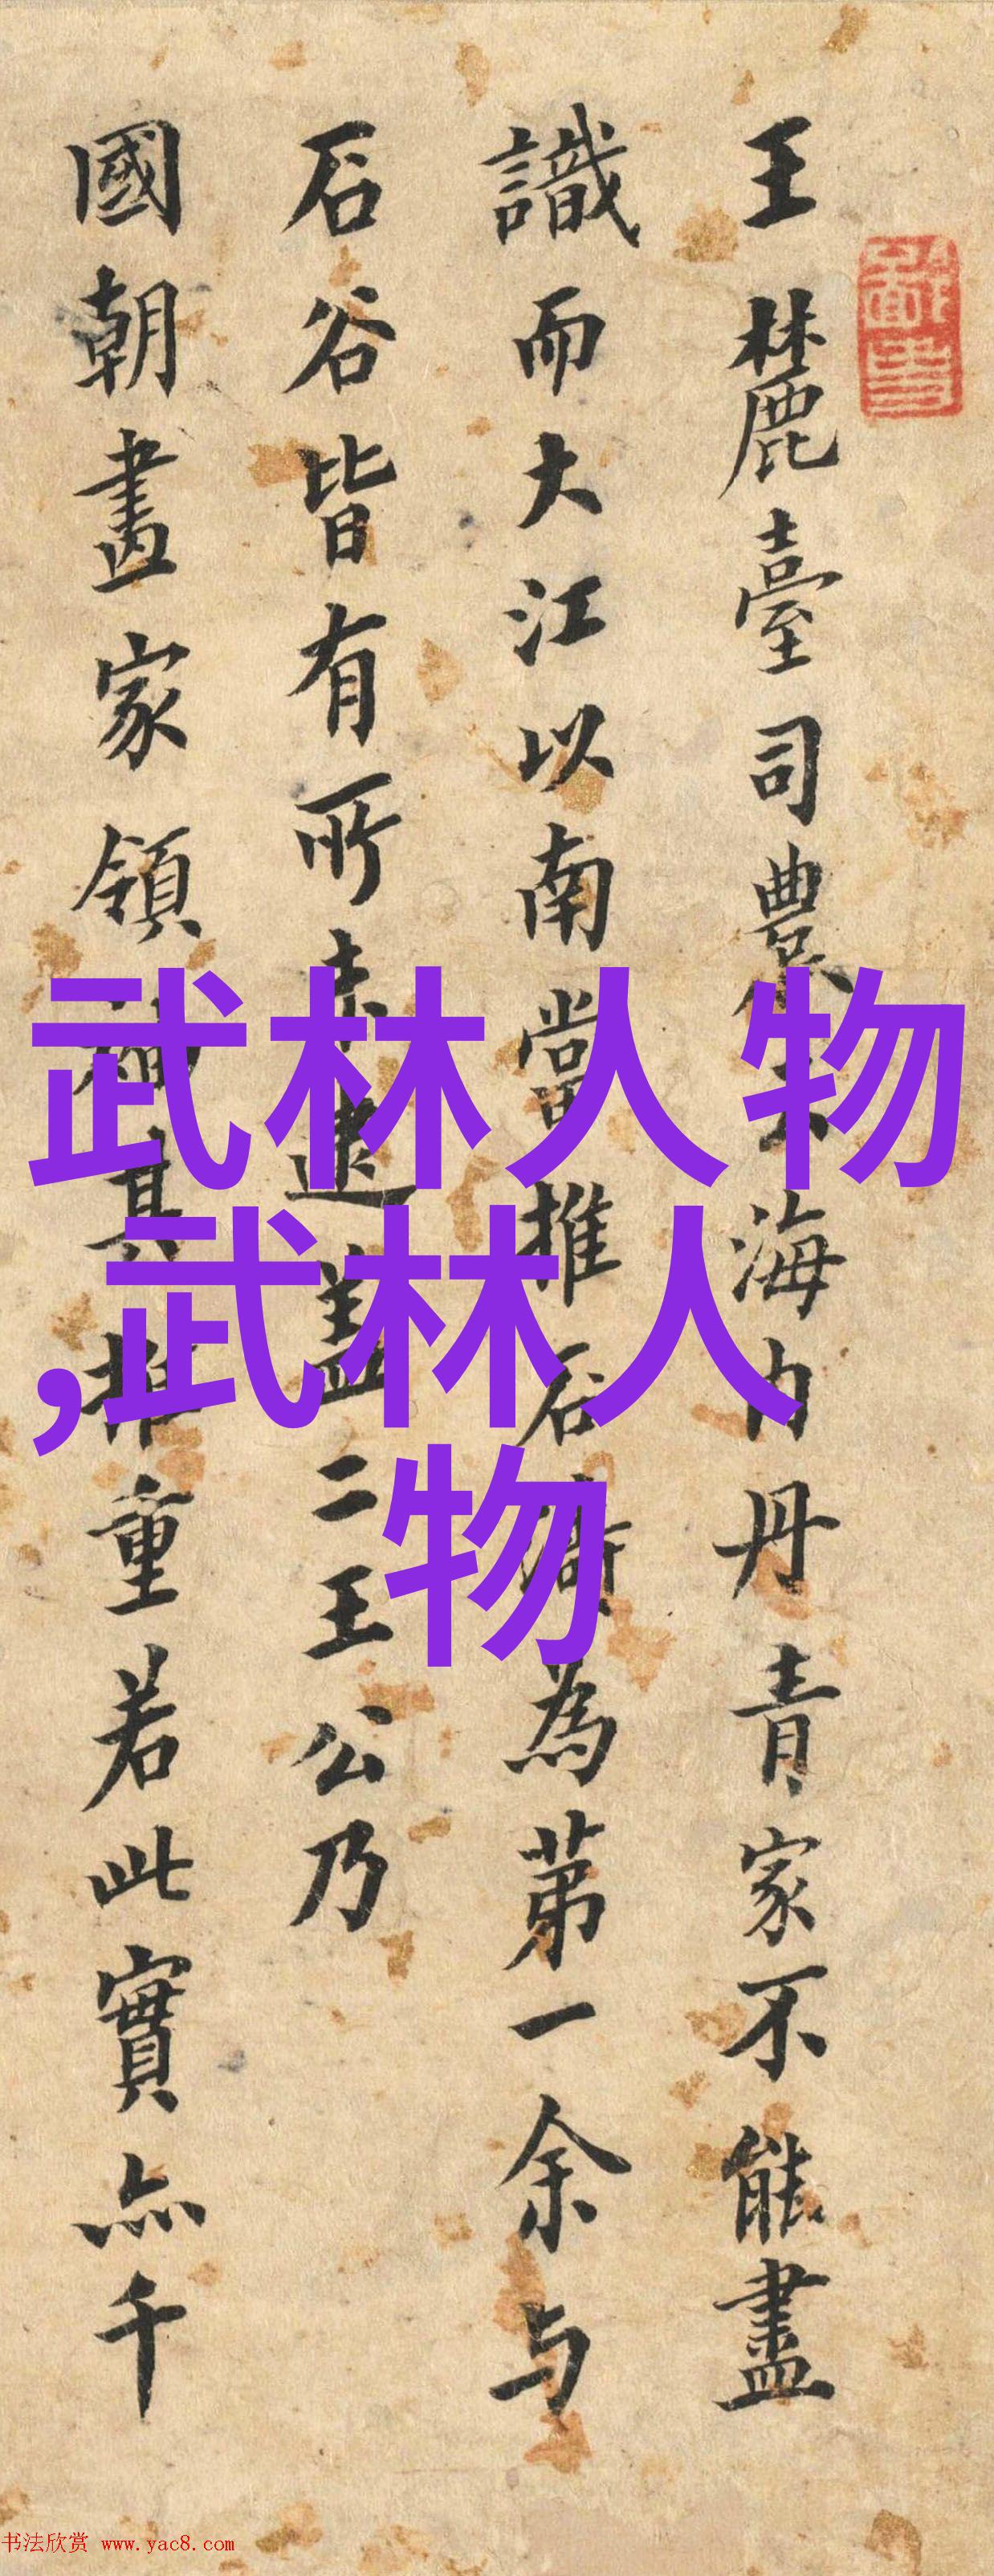 王麓臺司農云海内丹青家不能盡
識而大江以南當推石谷為第一余与
石谷皆有所未逮蓋二王公乃
國朝畫家領袖其推重若此實亦千
武林人物
,武林人
物
书法欣赏 www.yac8.com